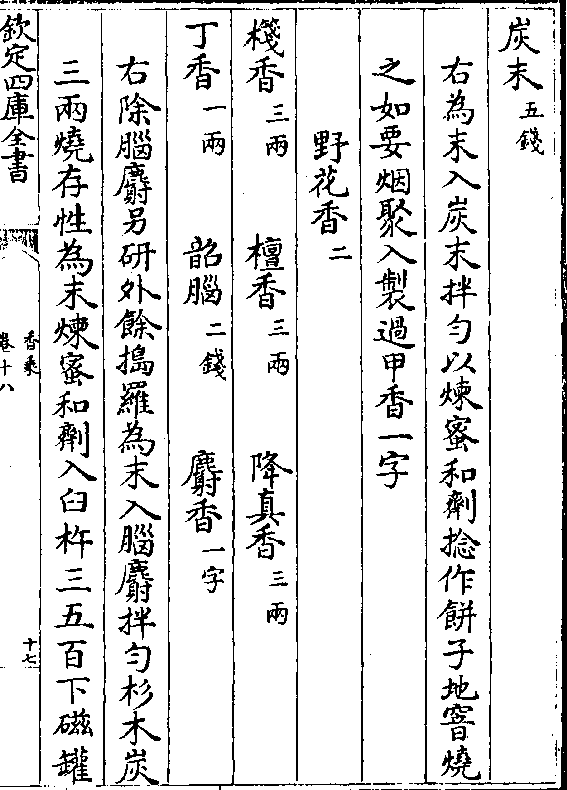 炭末五錢
右為末入炭末拌勻以煉蜜和劑捻作餅子地窨燒
之如要烟聚入製過甲香一字
野花香二
棧香三兩 檀香三兩 降真香三兩
丁香一兩 韶腦二錢 麝香一字
右除腦麝另研外餘搗羅為末入腦麝拌勻杉木炭
三兩燒存性為末煉蜜和劑入臼杵三五百下磁罐
欽定四庫全書
香乘
卷十八
十七